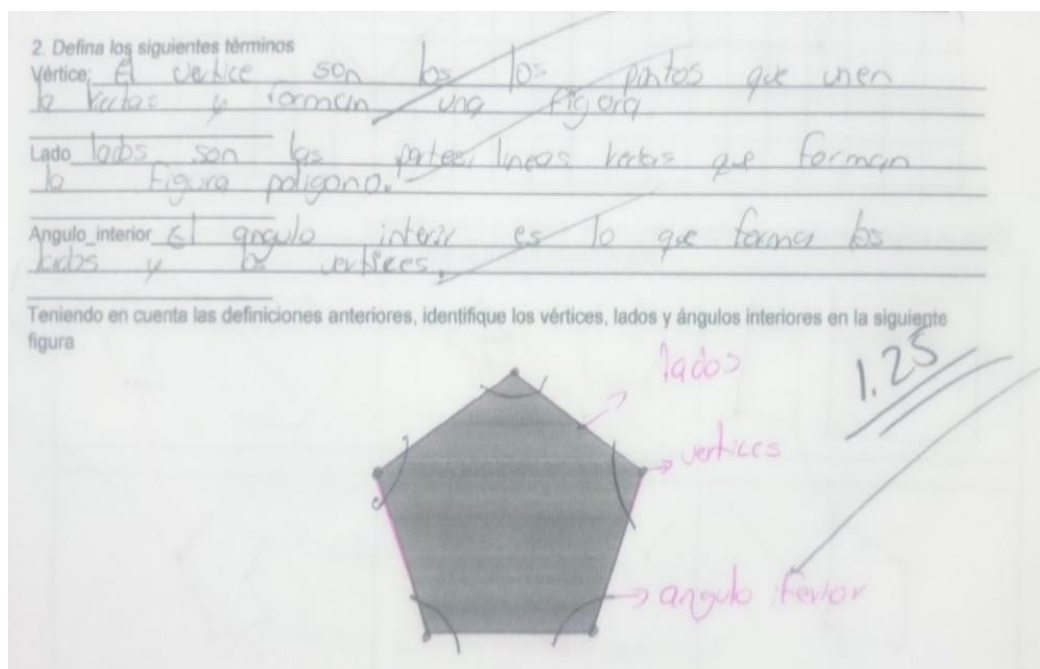 2. Defina los siguientes términos
Vértice: El vertice son los los puntos que unen
la rectas y forman una figura
Lado lados son las partes, lineas rectas que forman
la figura poligono.
Angulo_interior El angulo interir es lo que forma los
lados y los vertices.
Teniendo en cuenta las definiciones anteriores, identifique los vértices, lados y ángulos interiores en la siguiente
figura
lados
1.25
vertices
angulo